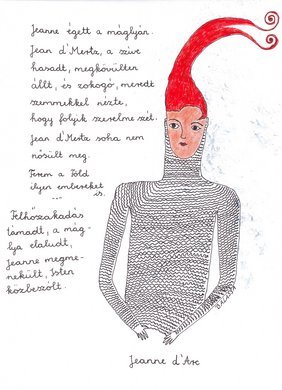 Jeanne égett a máglyán.
Jean d'Mertz, a szíve
hasadt, megkövülten
állt, és zokogó, meredt
szemmekkel nézte,
hogy folyik szerelme szét.
Jean d'Mertz soha nem
nősült meg.
Terem a Föld
ilyen embereket
is.
Felhőszakadás
támadt, a mág-
lya elaludt,
Jeanne megme-
nekült, Isten
közbeszólt.
Jeanne d'Arc